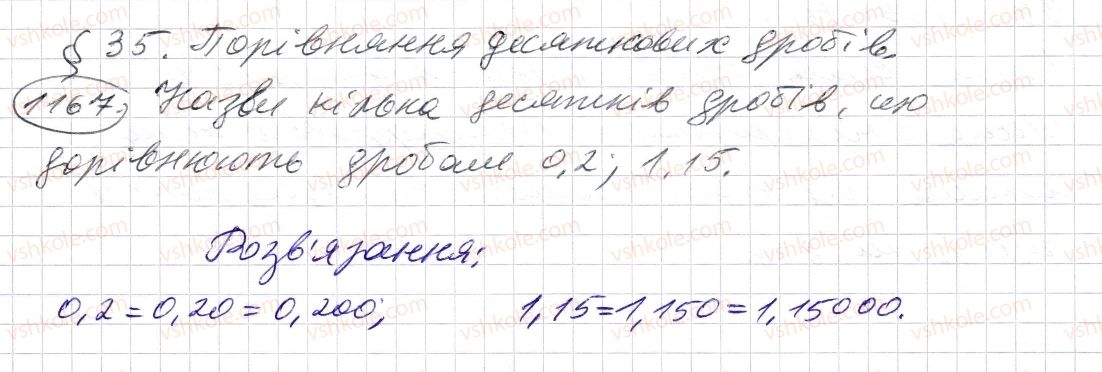 § 35. Порівняння десяткових дробів.
1167, Назви кілька десятків дробів, що
дорівнюють дробам 0,2; 1,15.
Розв'язання:
0,2 = 0,20 = 0,200; 1,15 = 1,150 = 1,15000.